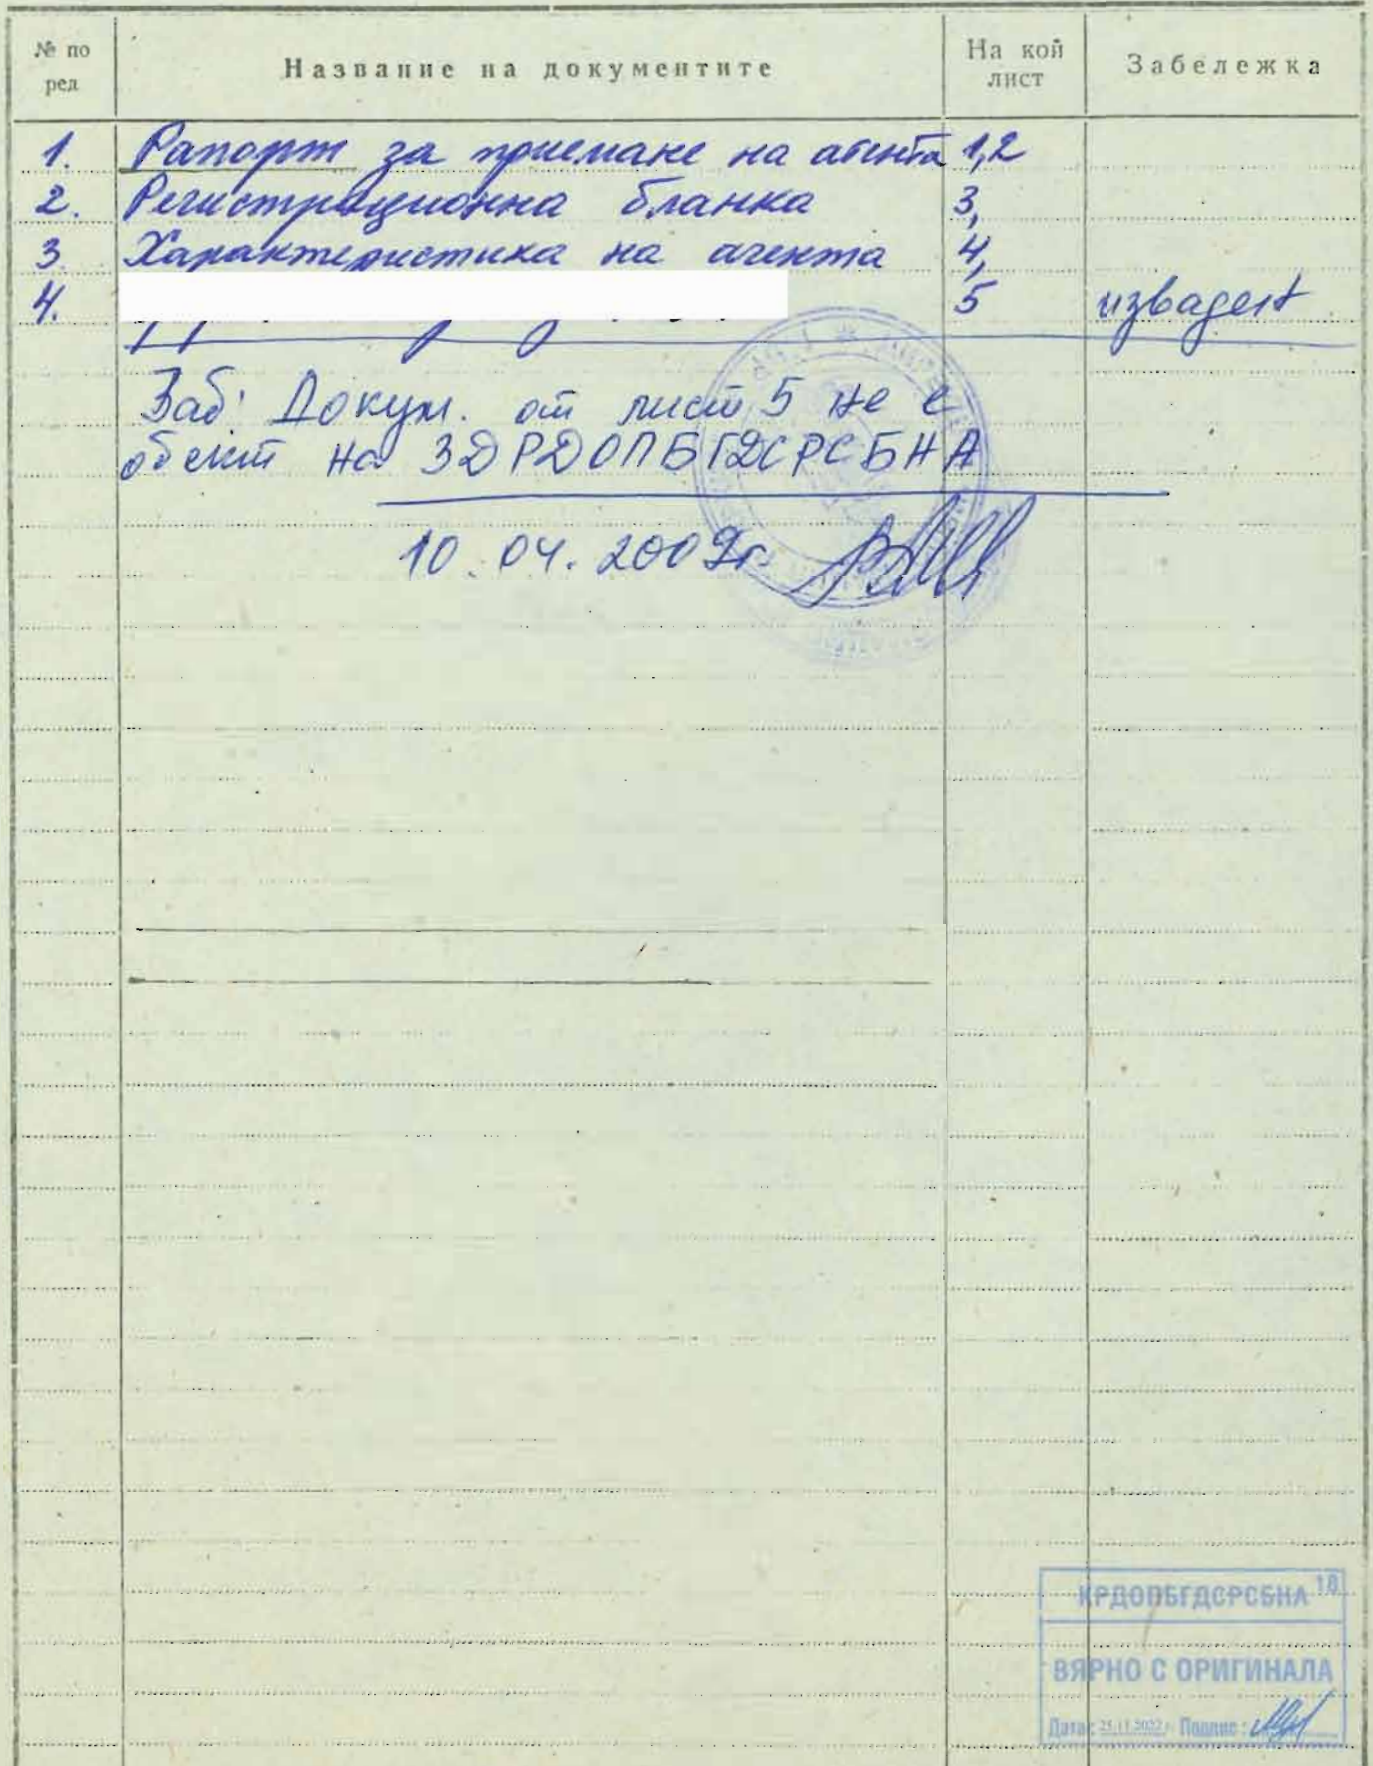 № по ред | Название на документите | На кой лист | Забележка
1. Рапорт за приемане на агента 1,2
2. Регистрационна бланка 3,
3. Характеристика на агента 4,
4. 5 изваден
Заб: Докум. от лист 5 не е
обект на ЗДРДОПБГДСРСБНА
10.04.2009г.
КРДОПБГДСРСБНА 18
ВЯРНО С ОРИГИНАЛА
Дата: 25.11.2022 г. Подпис: